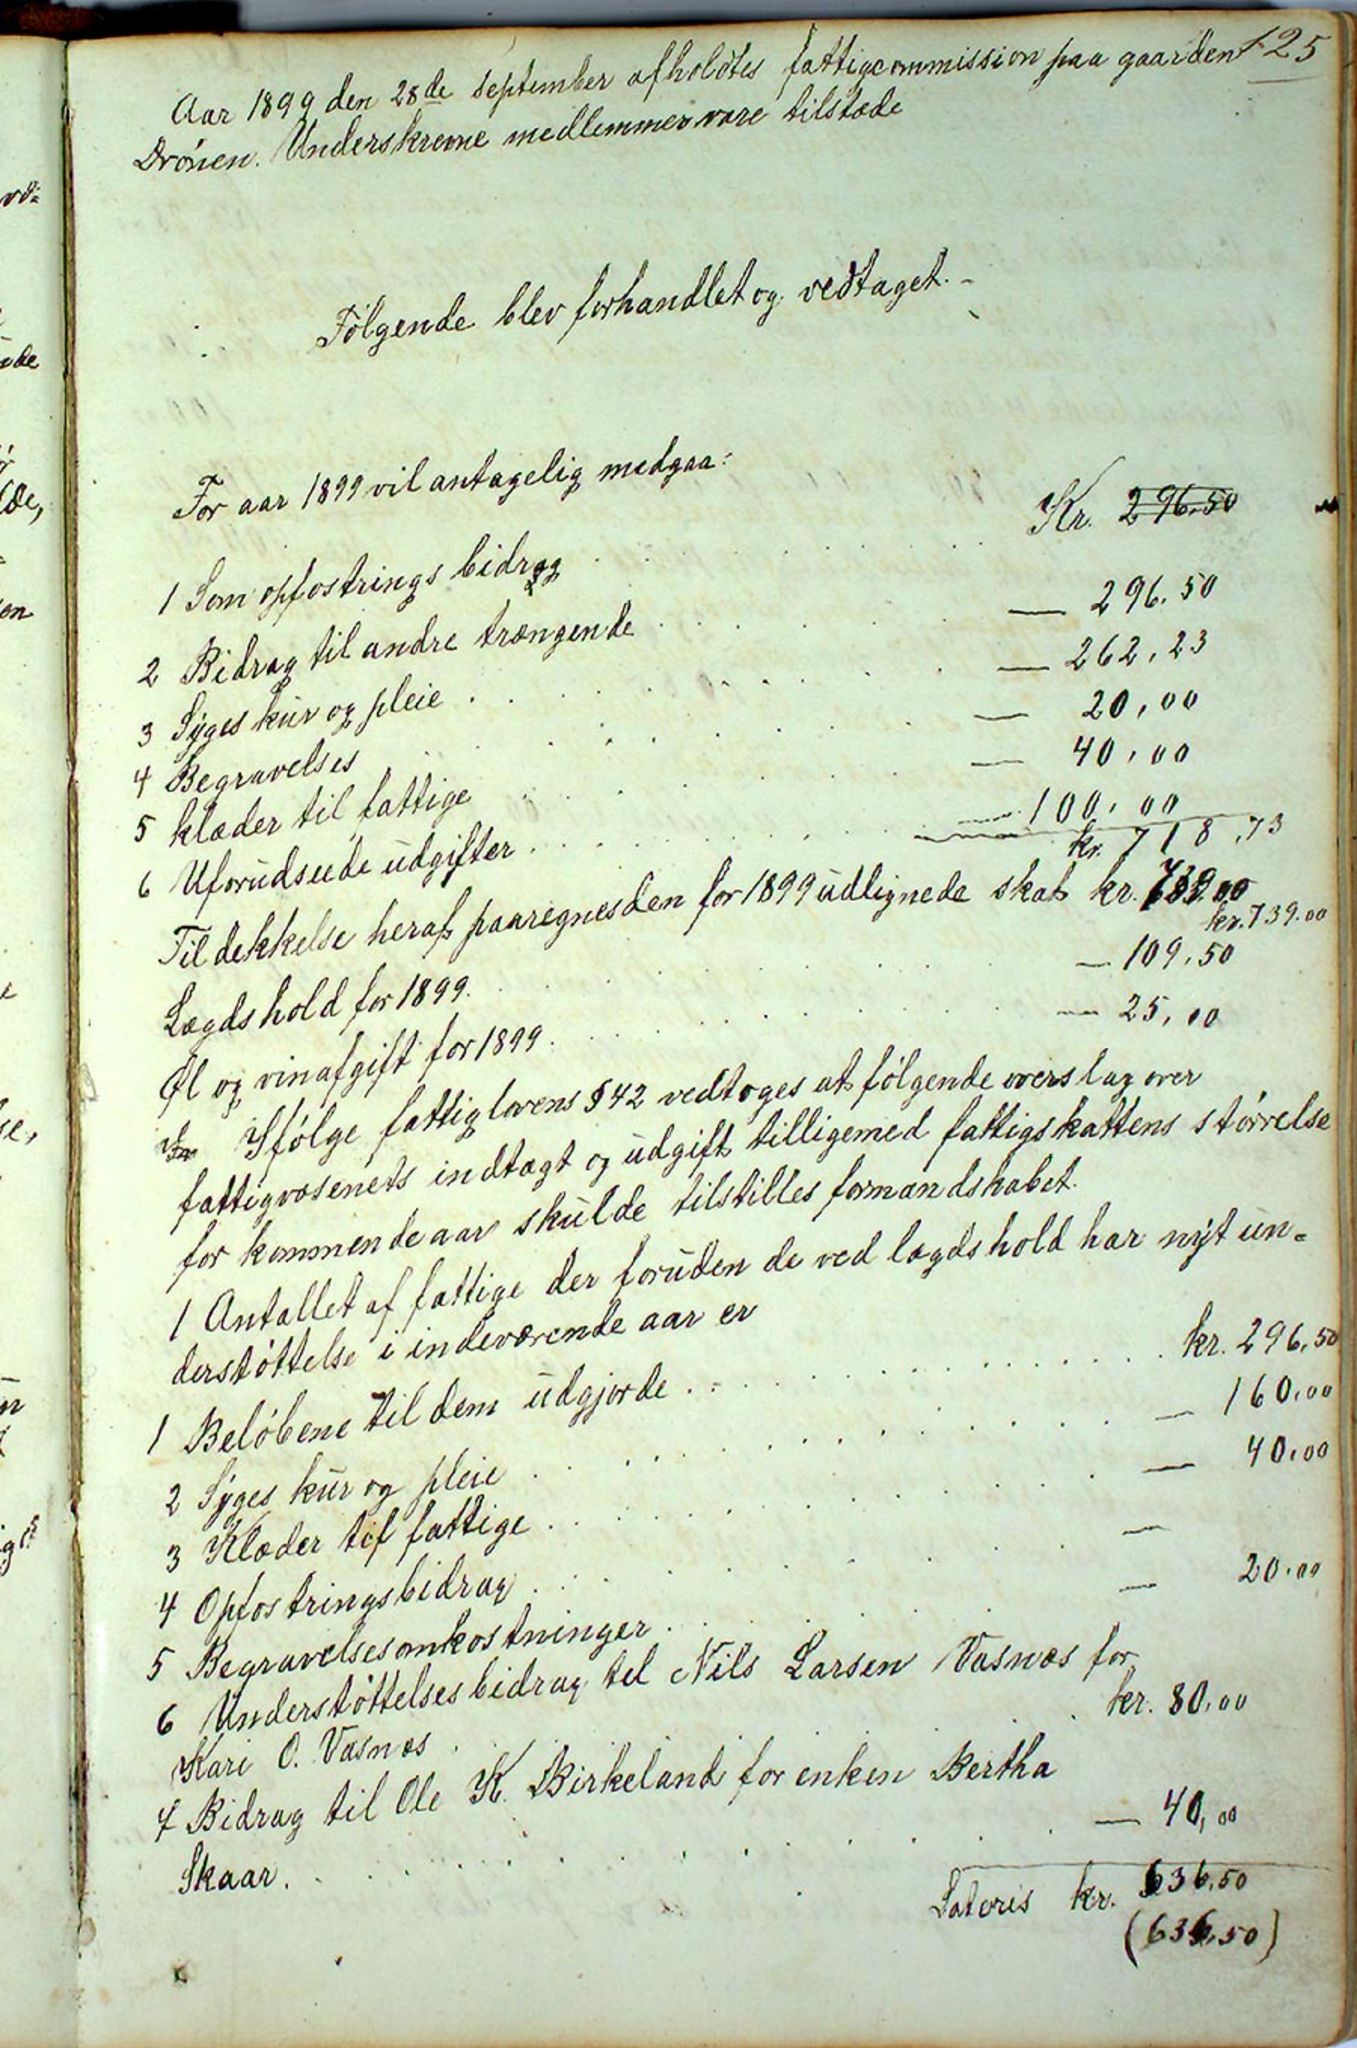 125
Aar 1899 den 28de september afholdtes fattigcommission paa gaarden
Drönen. Underskrevne medlemmer vare tilstæde
Fölgende blev forhandlet og vedtaget. -
For aar 1899 vil antagelig medgaa:
1 Som opfostrings bidrag . . . . . . Kr. 296.50
2 Bidrag til andre trængende . . . . . . — 296.50
3 Syges kur og pleie . . . . . . — 262,23
4 Begravelses . . . . . . — 20,00
5 klæder til fattige . . . . . . — 40,00
6 Uforudseede udgifter . . . . . . — 100,00
kr. 718,73
Til dekkelse heraf paaregnes den for 1899 udlignede skat kr. 739.00
kr. 739.00
Lægdshold for 1899. . . . . . . — 109,50
Øl og vinafgift for 1899. . . . . . . — 25,00
Ifölge fattiglovens § 42 vedtoges at fölgende overslag over
fattigvæsenets indtægt og udgift tilligemed fattigskattens störrelse
for kommende aar skulde tilstilles formandskabet.
1 Antallet af fattige der foruden de ved lægdshold har nÿt un-
derstöttelse i indeværende aar er
1 Belöbene til dem udgjorde . . . . . . kr. 296,50
2 Syges kur og pleie . . . . . . — 160,00
3 Klæder til fattige . . . . . . — 40,00
4 Opfostringsbidrag . . . . . . —
5 Begravelsesomkostninger . . . . . . — 20.00
6 Understöttelsesbidrag til Nils Larsen Vasnæs for
Kari O. Vasnæs . . . . . . kr. 80,00
7 Bidrag til Ole K. Birkeland for enken Bertha
Skaar. . . . . . . — 40,00
Lateris kr. 636,50
(636,50)